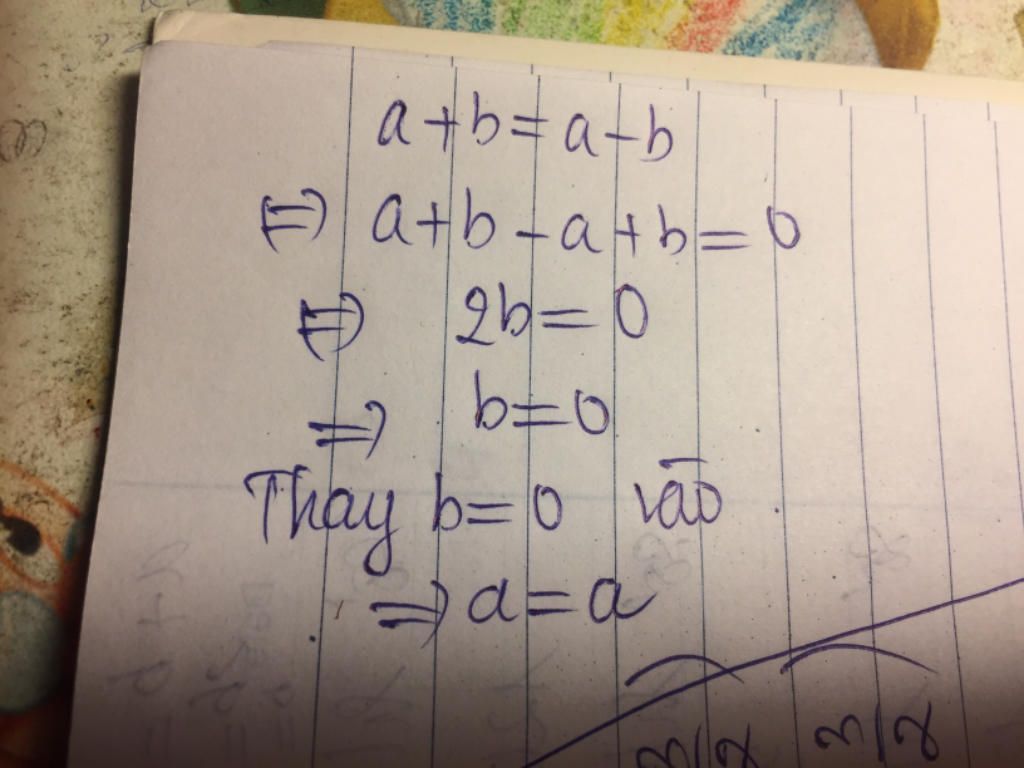 a+b=a-b
⇔ a+b-a+b=0
⇔ 2b=0
⇒ b=0
Thay b=0 vào
⇒ a=a
3/2 3/2